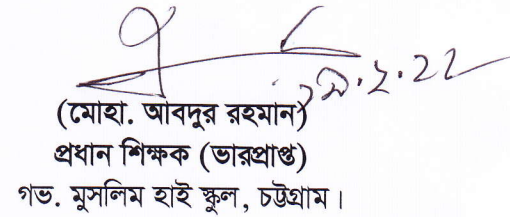 (মোহা. আবদুর রহমান)
প্রধান শিক্ষক (ভারপ্রাপ্ত)
গভ. মুসলিম হাই স্কুল, চট্টগ্রাম।